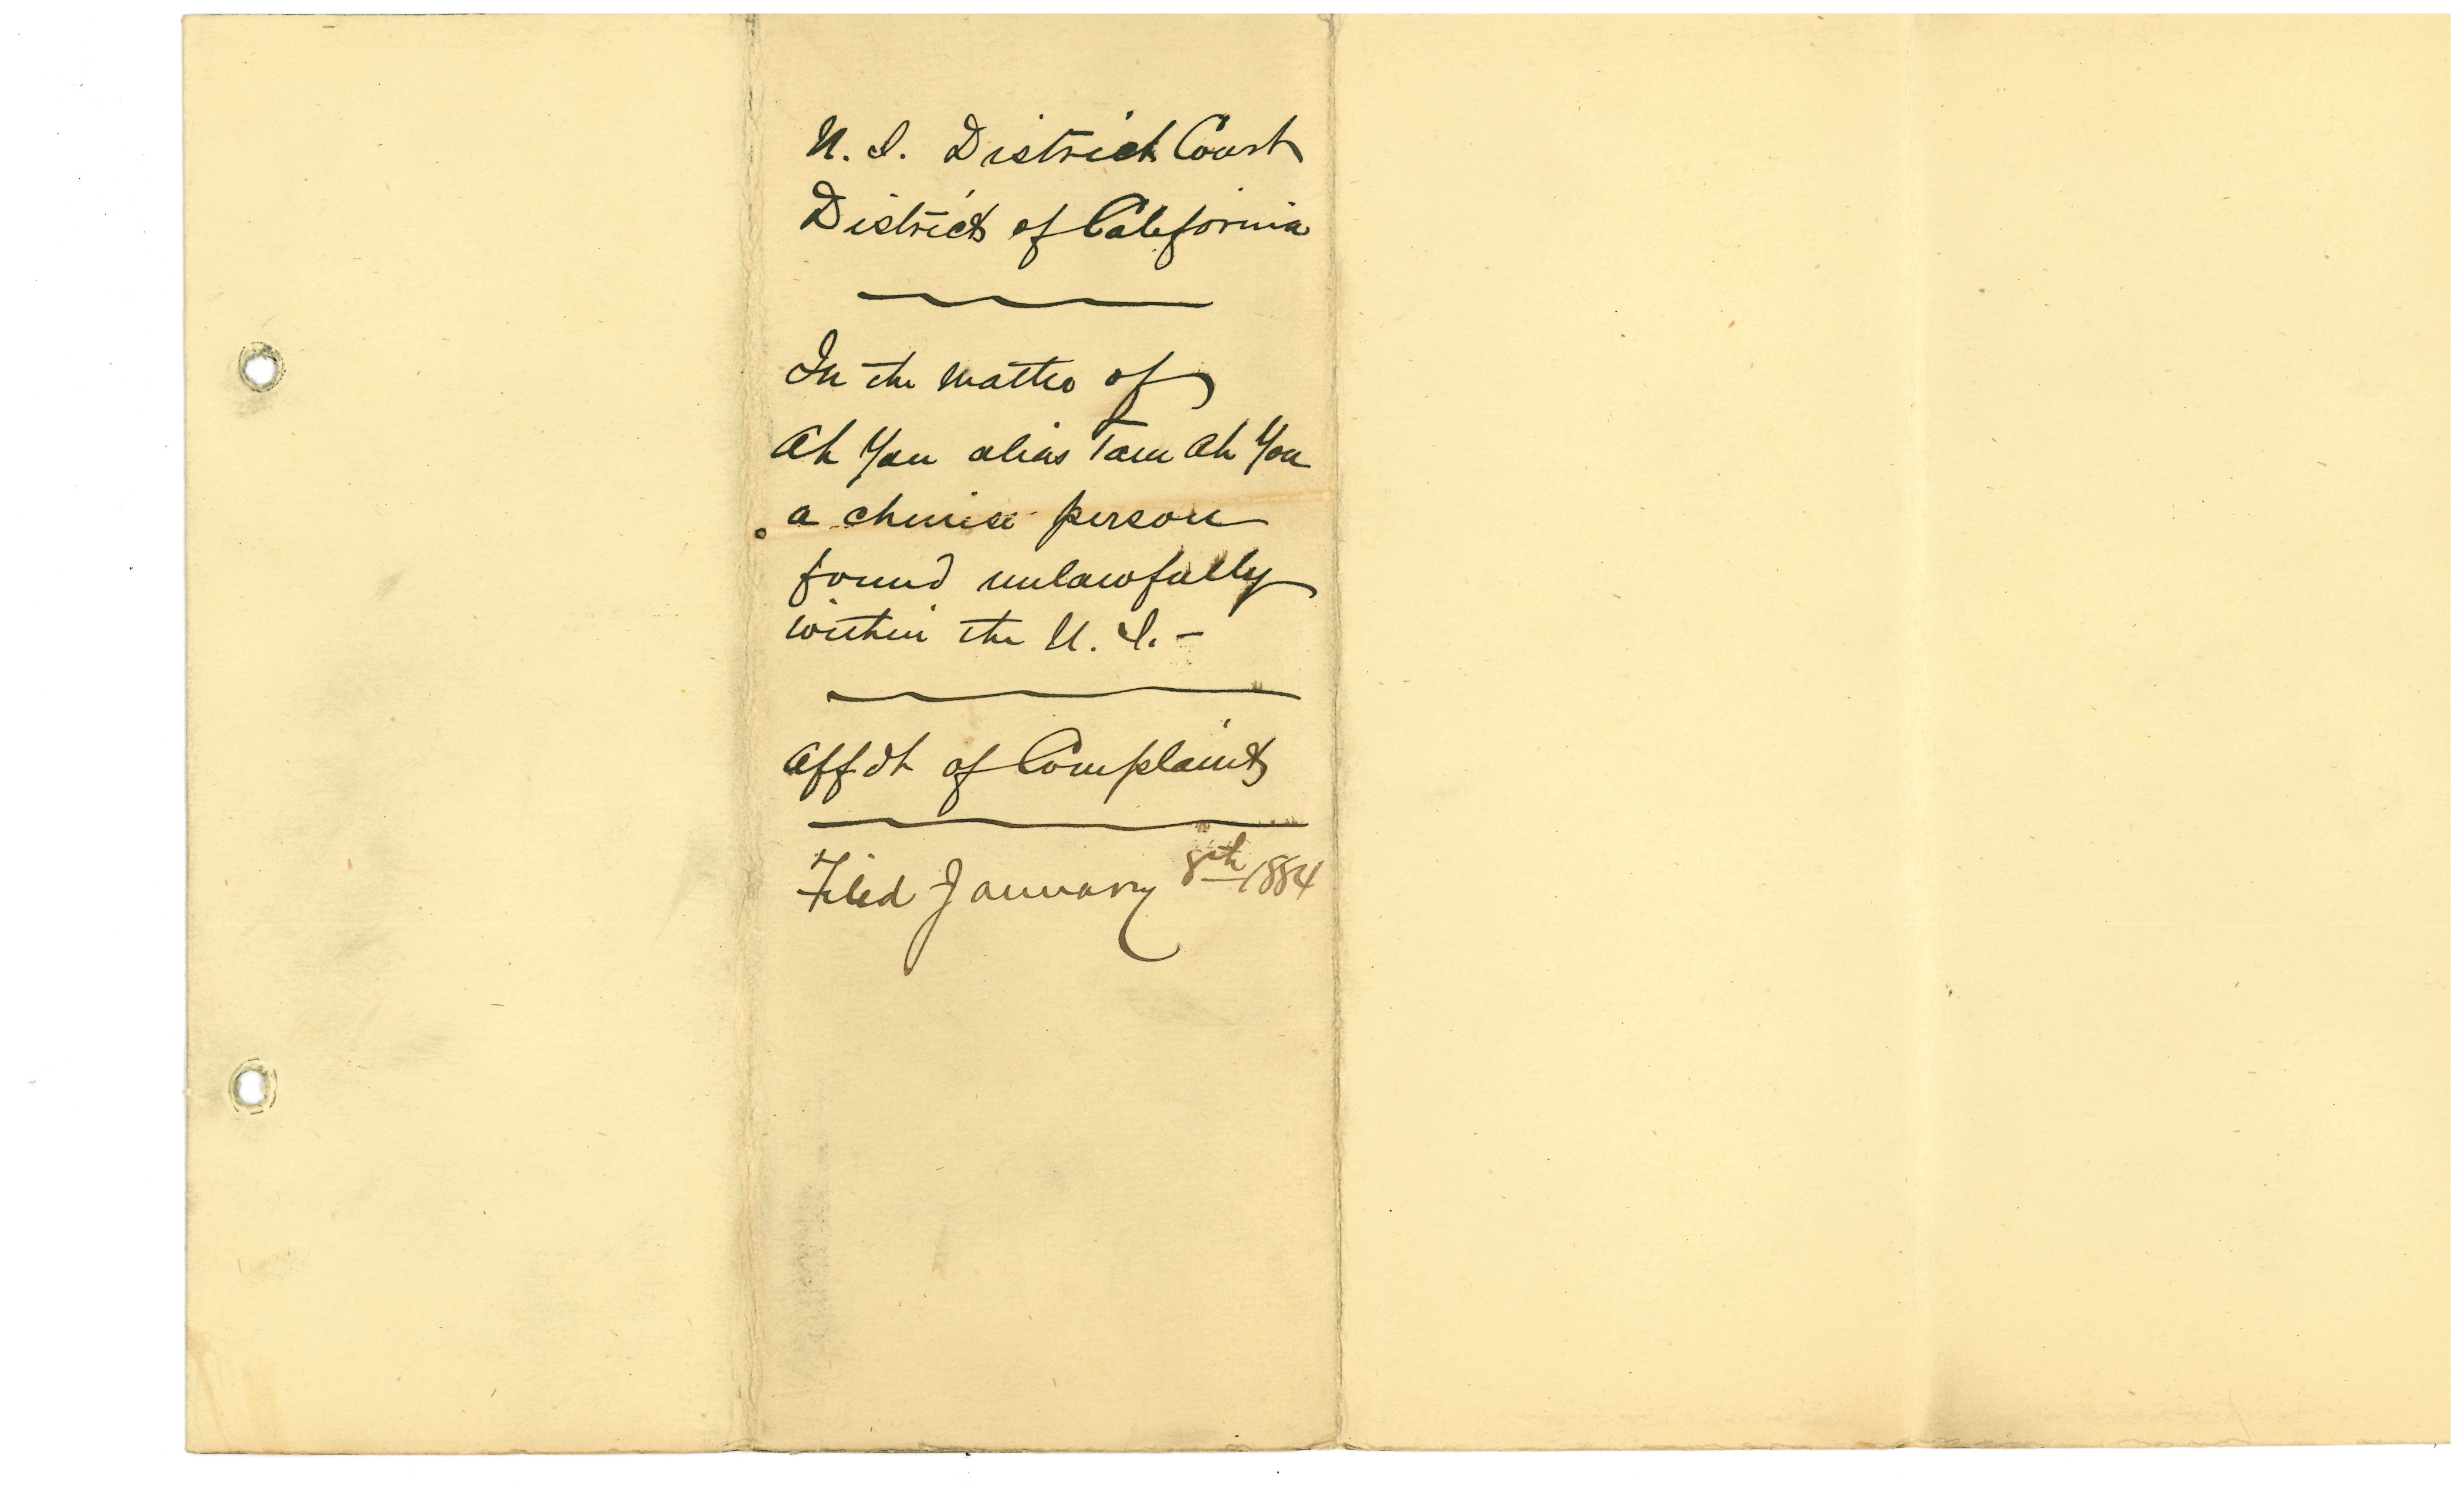 U. S. District Court
District of California
In the matter of
Ah You alias Tam Ah You
a chinese person
found unlawfully
within the U. S. -
Affdt of Complaint
Filed January 8th 1884